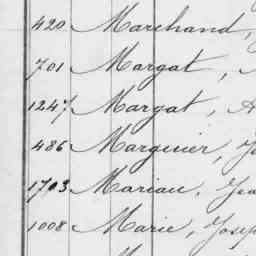 420 Marchand,
701 Margat,
1247 Margat, A
486 Marguier, J
1703 Mariau, Jea
1008 Marie, Josep